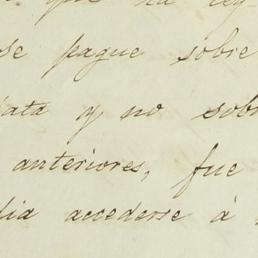 que ha
se pague sobre
ata y no sob
anteriores, fue
dia accederse á